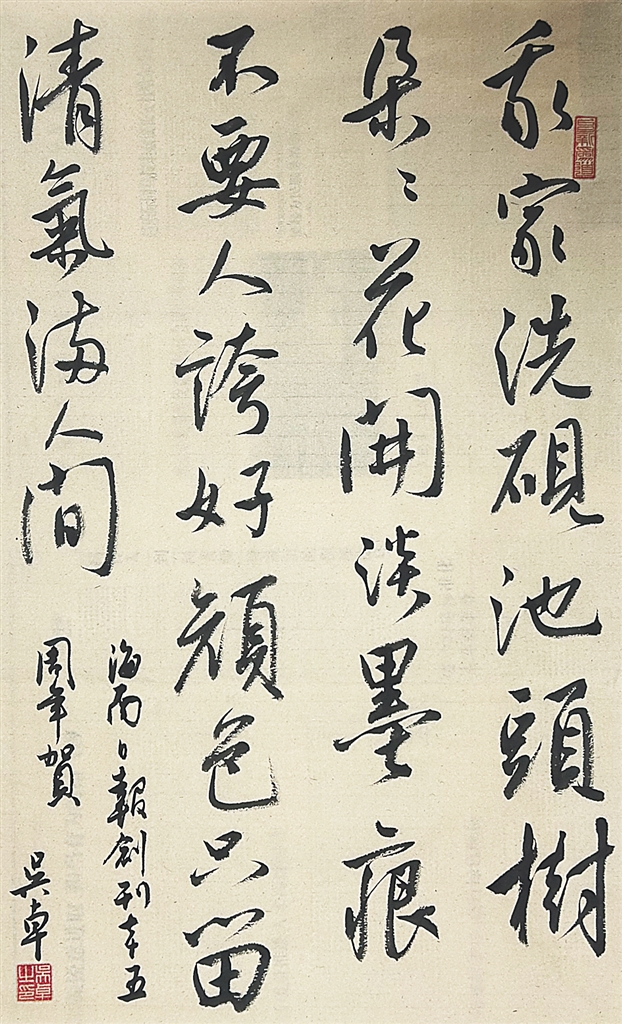 我家洗硯池頭樹
朵〻花開淡墨痕
不要人誇好顔色只留
清氣滿人間
海南日報創刊七十五
周年賀
吳卓
吳卓之印